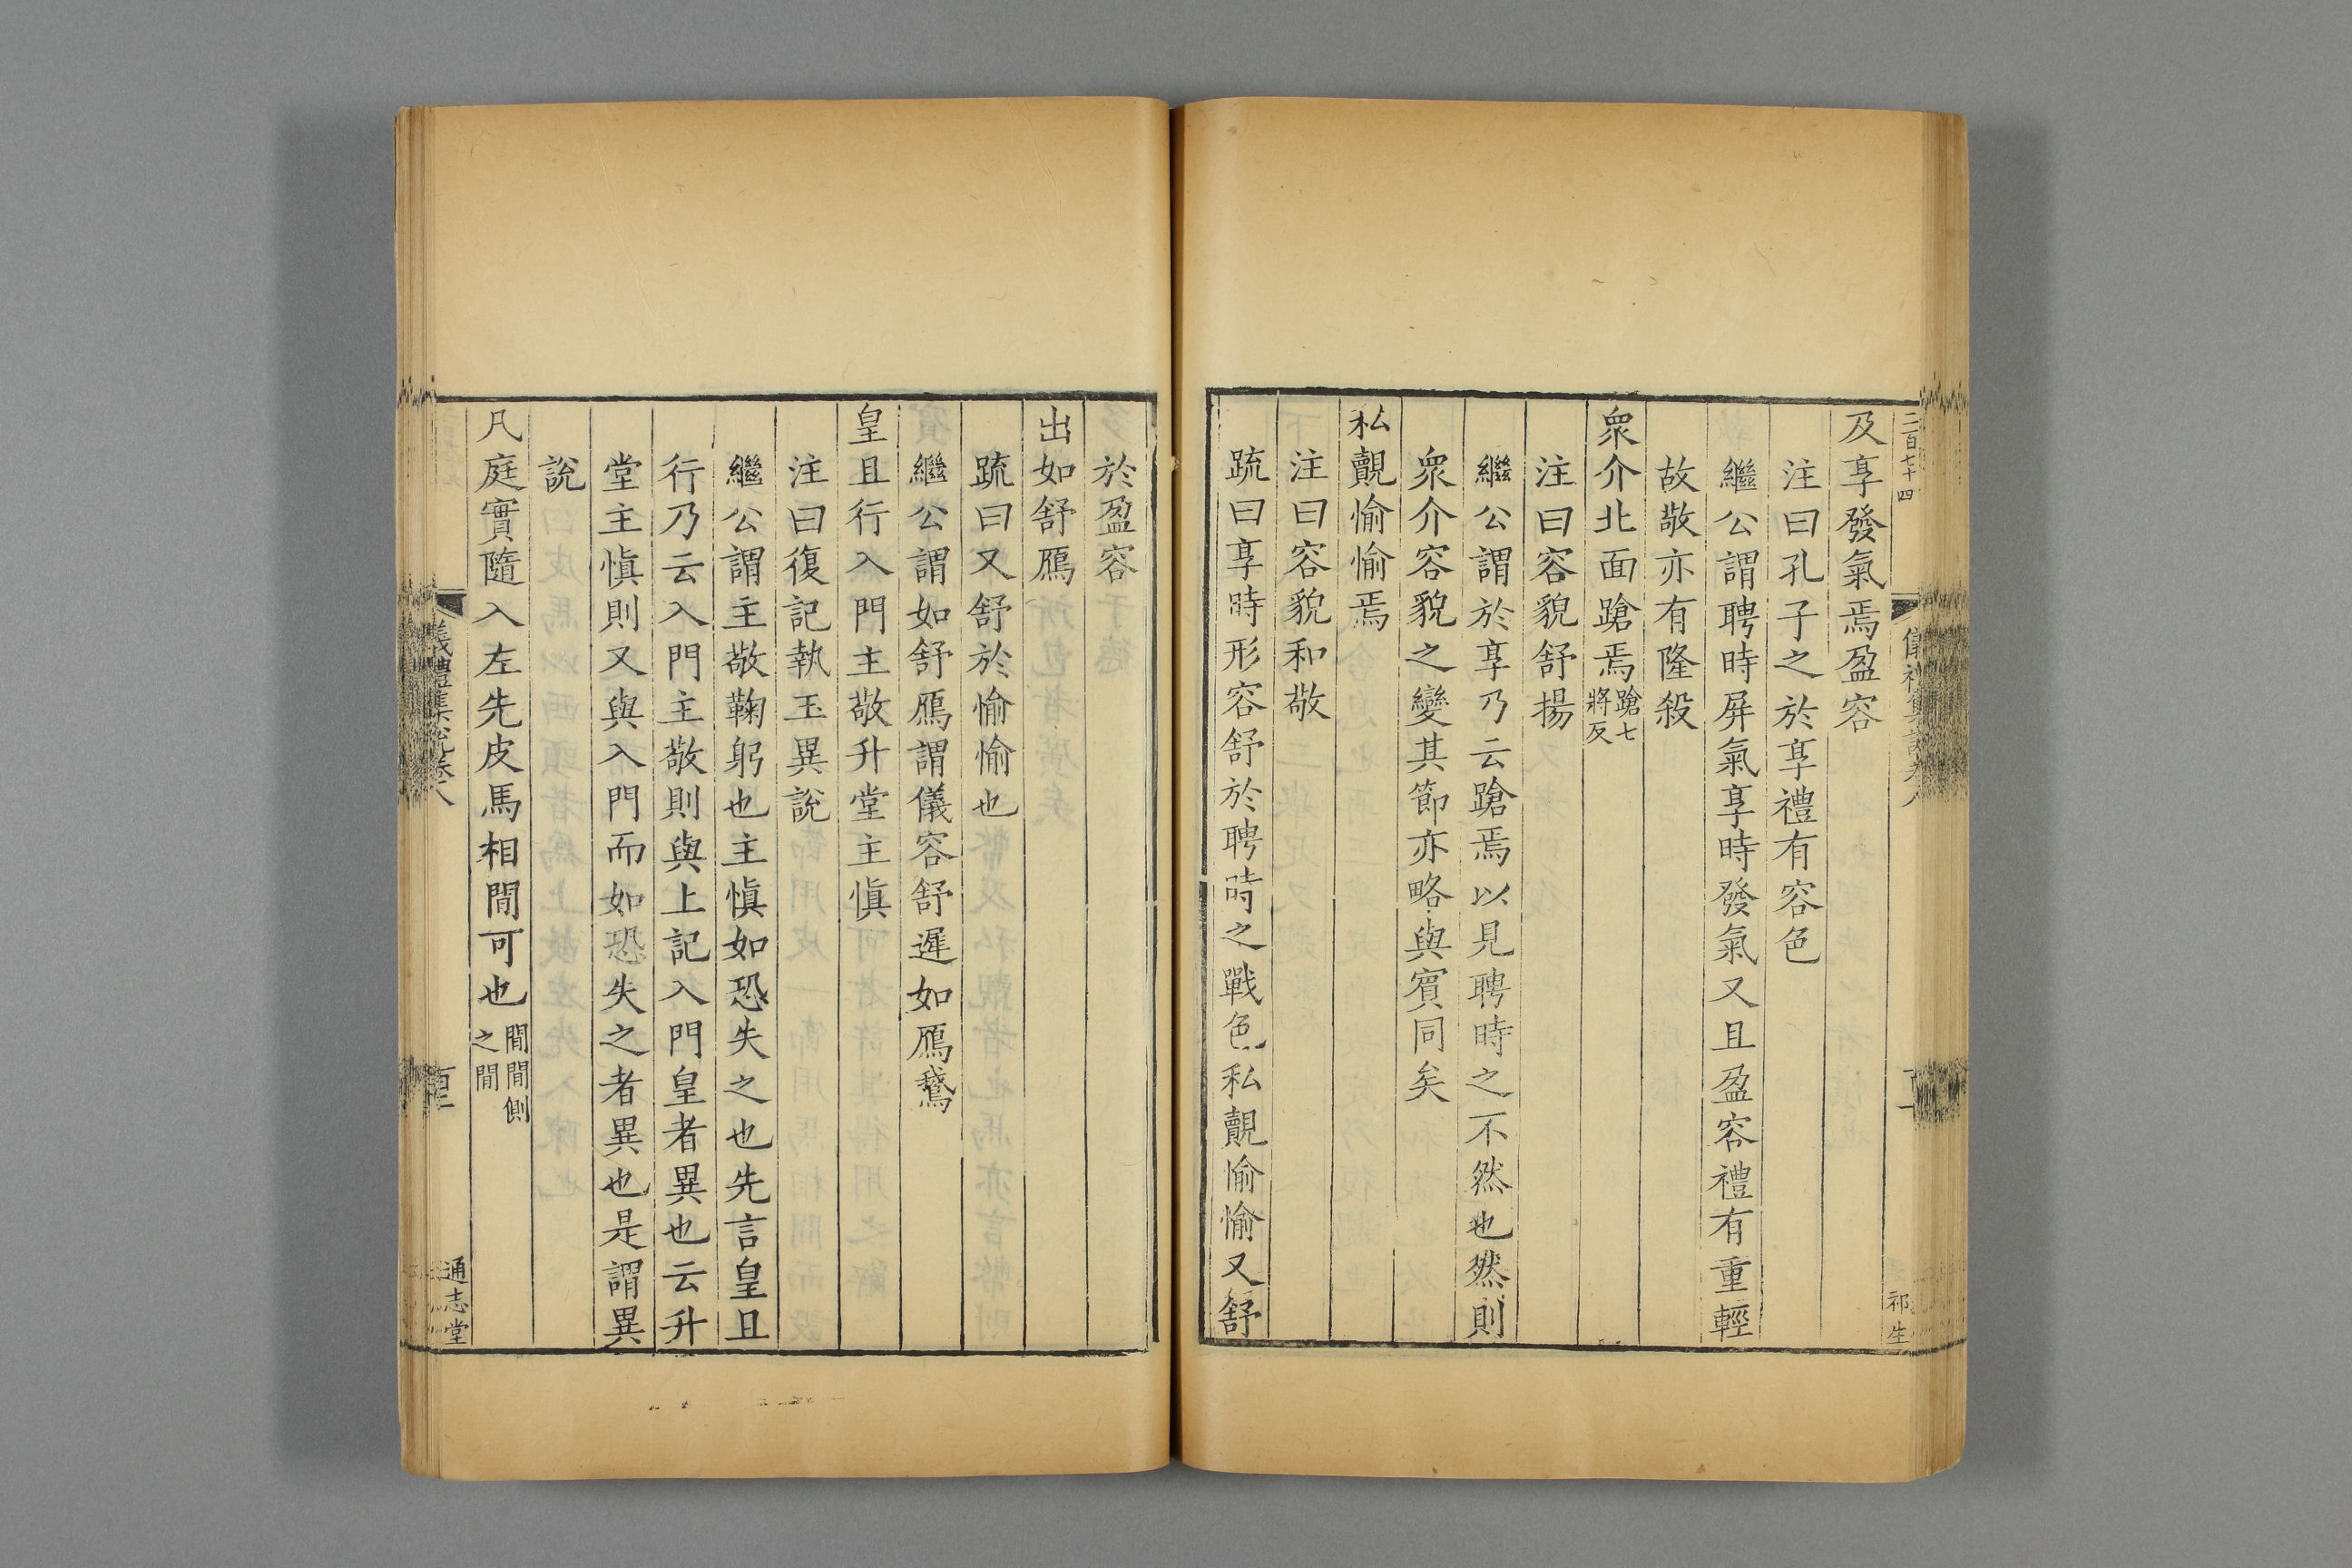 二百七十四
及享發氣焉盈容
注曰孔子之於享禮有容色
繼公謂聘時屏氣享時發氣又且盈容禮有重輕
故敬亦有隆殺
衆介北面蹌焉蹌七將反
注曰容貌舒揚
繼公謂於享乃云蹌焉以見聘時之不然也然則
衆介容貌之變其節亦略與賓同矣
私覿愉愉焉
注曰容貌和敬
疏曰享時形容舒於聘時之戰色私覿愉愉又舒
祁生
於盈容
出如舒鴈
疏曰又舒於愉愉也
繼公謂如舒鴈謂儀容舒遲如鴈鵞
皇且行入門主敬升堂主愼
注曰復記執玉異說
繼公謂主敬鞠躬也主愼如恐失之也先言皇且
行乃云入門主敬則與上記入門皇者異也云升
堂主愼則又與入門而如恐失之者異也是謂異
說
凡庭實隨入左先皮馬相閒可也閒閒側之閒
儀禮集說卷八
通志堂